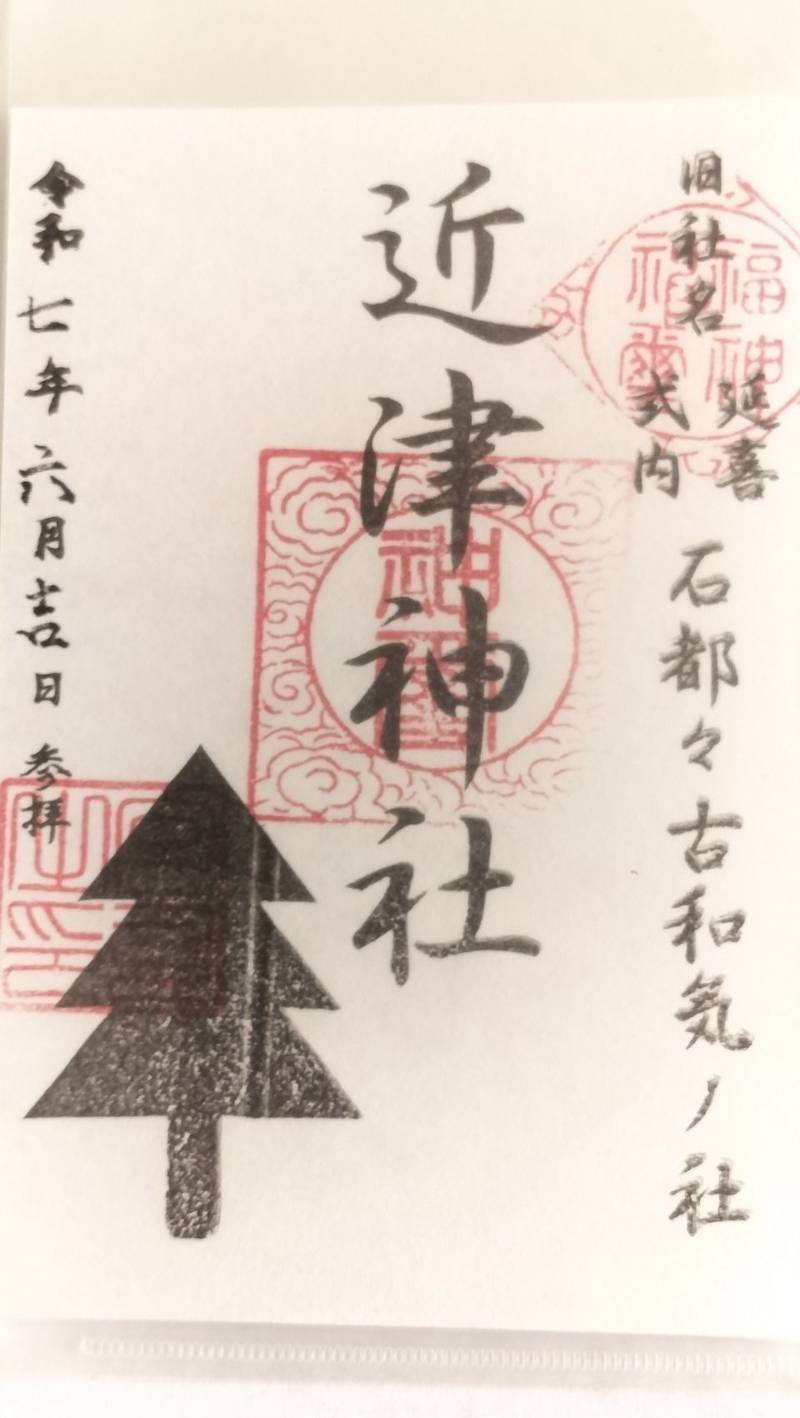 旧社名
延喜
式内
石都々古和気ノ社
近津神社
令和七年六月吉日 参拝
福神
神璽